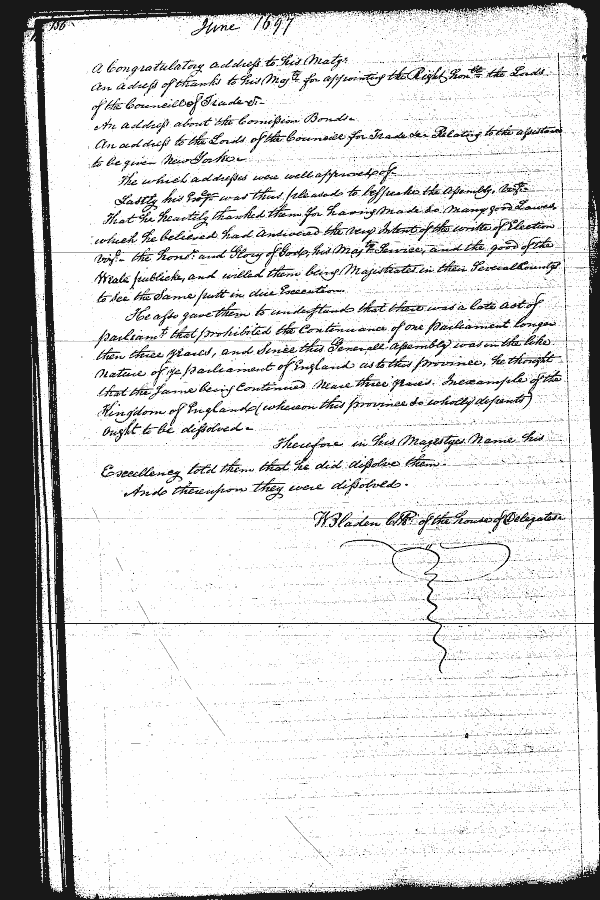 136
June 1697
A Congratulatory address to his Maty.
An adress of thanks to his Majty for appointing the Right Honble the Lords
of the Councill of Trade &c.
An address about the Comission Bonds.
An address to the Lords of the Councill for Trade &c Relating to the assistance
to be given New Yorke
The which addresses were well approved of.
Lastly his Excy was thus pleased to bespeake the Assembly. vizt.
That he heartily thanked them for having made so many good Lawes,
which he believed had Answered the very Intent of the writts of Election
vizt. the Honr. and Glory of God, his Majtys Service, and the good of the
Weale publicke, and willed them being Majistrates in their Severall Countys
to see the Same putt in due Execution.
He also gave them to understand that there was a late act of
parliamt. that prohibited the Continuance of one Parliament longer
then three years, and Since this Generall Assembly was in the like
nature of ye parliament of England as to this province, he thought
that the Same being Continued neare three years. In example of the
Kingdom of England (whereon this province so wholly depents)
Ought to be dissolved.
Therefore in his Magestyes Name his
Excellency told them that he did dissolve them.
And thereupon they were dissolved.
W Bladen Clk. of the house of Delegates